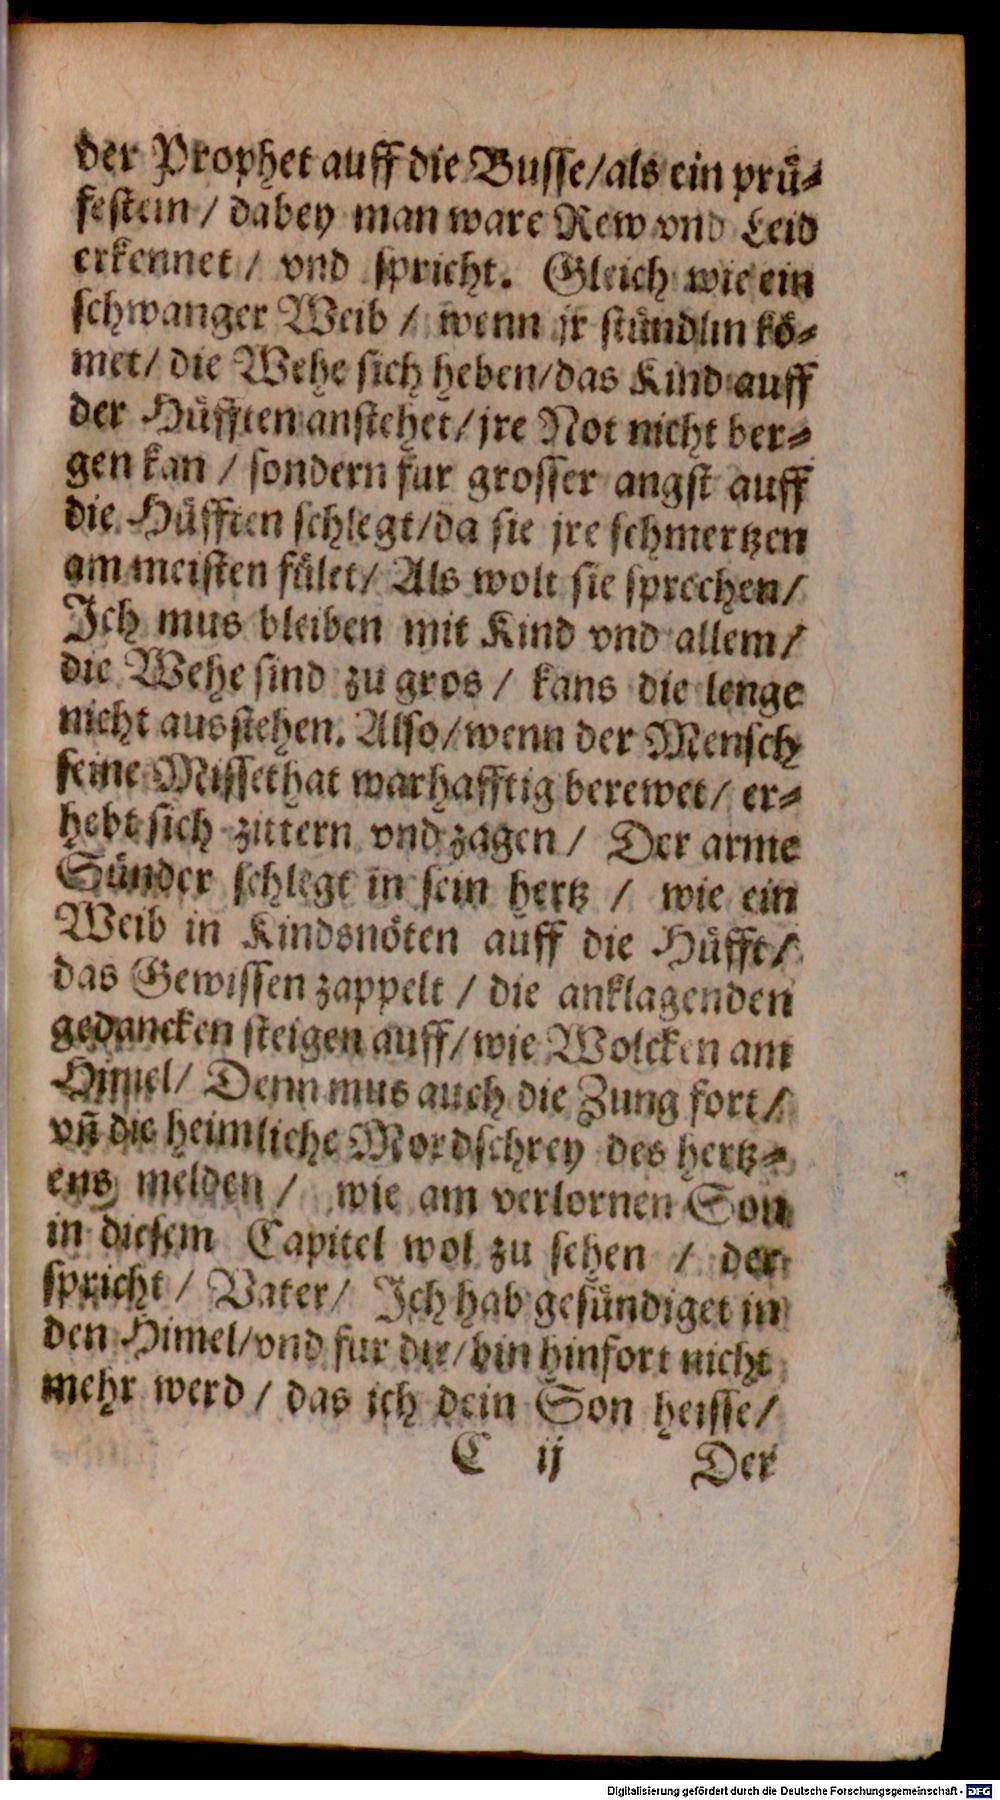 der Prophet auff die Busse/als ein prü-
festein / dabey man ware Rew vnd Leid
erkennet / vnd spricht. Gleich wie ein
schwanger Weib / wenn jr stündlin kö-
met/ die Wehe sich heben/das Kind auff
der Hüfften anstehet/jre Not nicht ber-
gen kan / sondern fur grosser angst auff
die Hüfften schlegt/da sie jre schmertzen
am meisten fület/ Als wolt sie sprechen/
Ich mus bleiben mit Kind vnd allem/
die Wehe sind zu gros / kans die lenge
nicht ausstehen. Also/wenn der Mensch
seine Missethat warhafftig berewet/ er-
hebt sich zittern vnd zagen / Der arme
Sünder schlegt in sein hertz / wie ein
Weib in Kindsnöten auff die Hüfft/
das Gewissen zappelt / die anklagenden
gedancken steigen auff/wie Wolcken am
Himel/ Denn mus auch die Zung fort/
vñ die heimliche Mordschrey des hertz-
ens melden / wie am verlornen Son
in diesem Capitel wol zu sehen / der
spricht / Vater/ Ich hab gesündiget in
den Himel/vnd fur dir/bin hinfort nicht
mehr werd / das ich dein Son heisse/
C ij Der
Digitalisierung gefördert durch die Deutsche Forschungsgemeinschaft - DFG